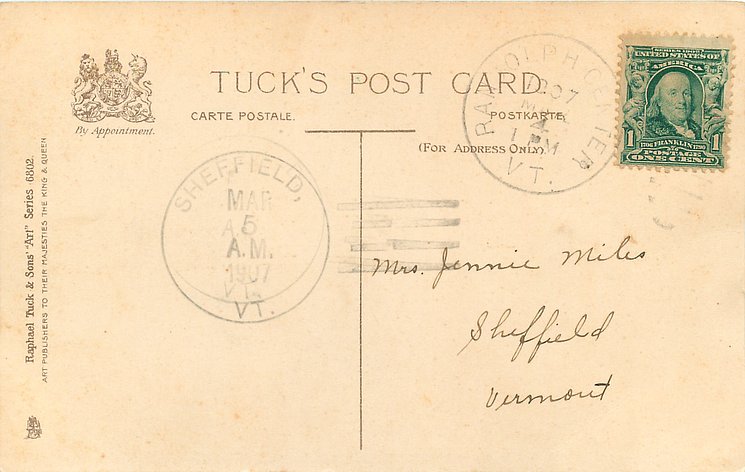 TUCK'S POST CARD.
CARTE POSTALE.
POSTKARTE.
(FOR ADDRESS ONLY).
By Appointment.
Raphael Tuck & Sons' "Art" Series 6802.
ART PUBLISHERS TO THEIR MAJESTIES THE KING & QUEEN
SHEFFIELD,
MAR
5
A.M.
1907
VT.
RANDOLPH CENTER
1907
VT.
SERIES 1902
UNITED STATES OF
AMERICA
1706 FRANKLIN 1790
1 POSTAGE 1
ONE CENT
Mrs. Jennie Miles
Sheffield
Vermont